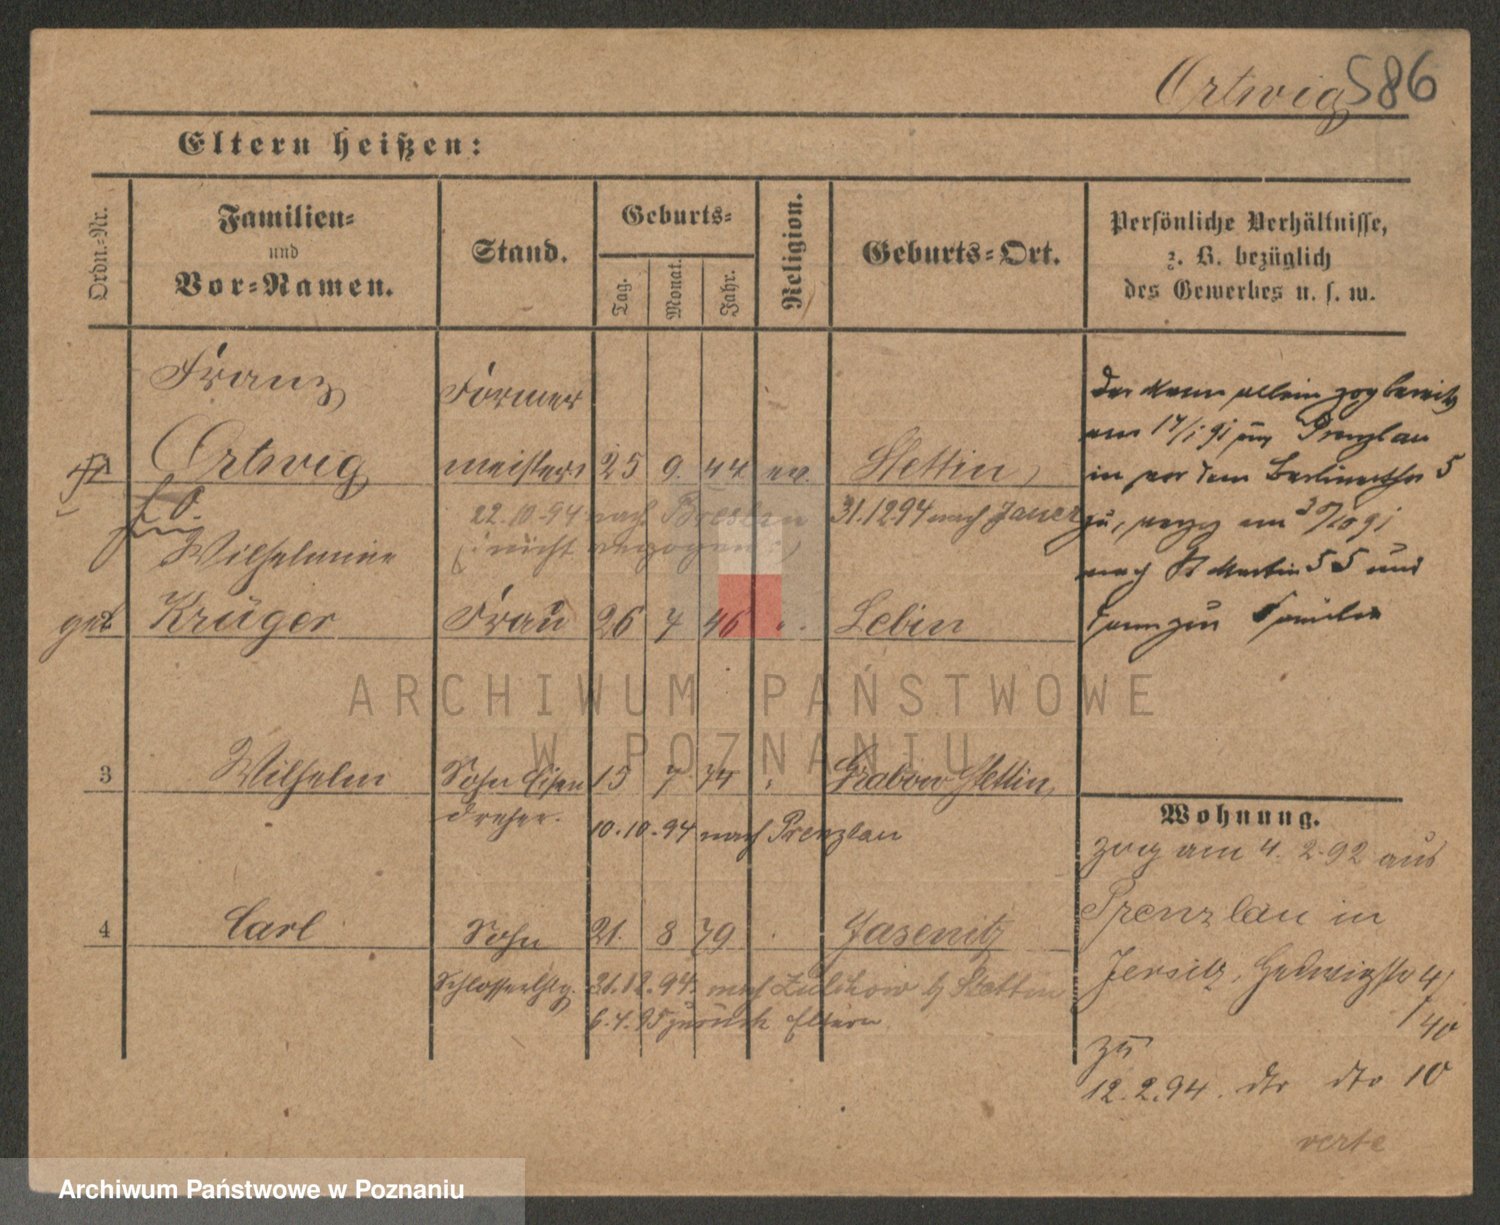 Ortwig 586
Eltern heißen:
Ordn.-Nr.
Familien-
und
Vor-Namen.
Stand.
Geburts-
Tag.
Monat.
Jahr.
Religion.
Geburts-Ort.
Persönliche Verhältnisse,
z. B. bezüglich
des Gewerbes u. s. w.
Franz Former
Ortwig meister 25 9. 44 ev. Stettin
22.10.94 nach Breslau 31.12.94 nach Jauer
(: nicht verzogen :)
Wilhelmine
geb 2 Krüger Frau 26 7 46 Lebin
3 Wilhelm Sohn Eisen 15 7 74 Grabow Stettin
dreher. 10.10.94 nach Prenzlau
4 Carl Sohn 21. 8 79 Jasenitz
Schlosserlhrlg. 31.12.94 nach Züllchow b/ Stettin
6.4.95 zurück Eltern
Der Mann allein zog bereits
am 17/1 91 von Prenzlau
in vor dem Berlinerthor 5
zu, verzog am 30/10 91
nach St Martin 55 und
dann zur Familie
Wohnung.
zog am 4. 2. 92 aus
Prenzlau in
Jersitz, Hedwigstr 4/
/40
zu
12.2.94. dto dto 10
verte
ARCHIWUM PAŃSTWOWE
W POZNANIU
Archiwum Państwowe w Poznaniu